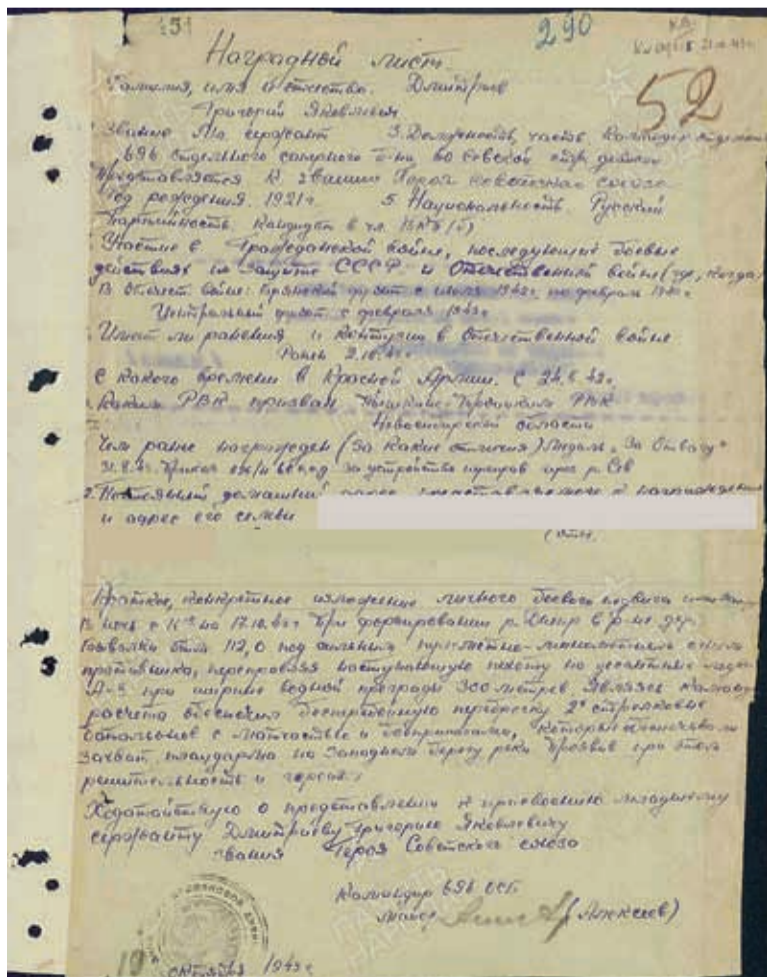 151
290
52
Наградной лист.
Фамилия, имя и отчество. Дмитриев
Григорий Яковлевич
Звание Мл. сержант 3. Должность, часть. Командир отделения
696 отдельного саперного б-на, стр. дивизии
Представляется к званию Героя Советского Союза
Год рождения. 1921г. 5. Национальность. Русский
Партийность. Кандидат в чл. ВКП(б)
Участие в Гражданской войне, последующих боевых
действиях по защите СССР и Отечественной войне (где, когда)
В Отечест. войне: Брянский фронт с июля 1942г. по февраль 1943г.
Центральный фронт с февраля 1943г.
Имеет ли ранения и контузии в Отечественной войне
Ранен
С какого времени в Красной Армии. С
Каким РВК призван РВК
Новосибирской области
Чем ранее награжден (за какие отличия) Медаль "За Отвагу"
Приказ за устройство через р. Сев
Постоянный домашний адрес представляемого к награждению
и адрес его семьи
Краткое, конкретное изложение личного боевого подвига
В ночь с 16 на 17.10.43г при форсировании р. Днепр в р-не дер.
112,0 под сильным огнем
противника, переправляя наступающую пехоту на десантных лодках
А-3 при ширине водной преграды 300 метров. Являясь командиром
расчета обеспечил бесперебойную переброску 2х стрелковых
батальонов с матчастью и боеприпасами, которые обеспечивали
захват плацдарма на Западном берегу реки проявив при этом
решительность и
Ходатайствую о представлении к присвоению младшему
сержанту Дмитриеву Григорию Яковлевичу
звания Героя Советского Союза
Командир 696 ОСБ
майор (Алексеев)
19 октября 1943г